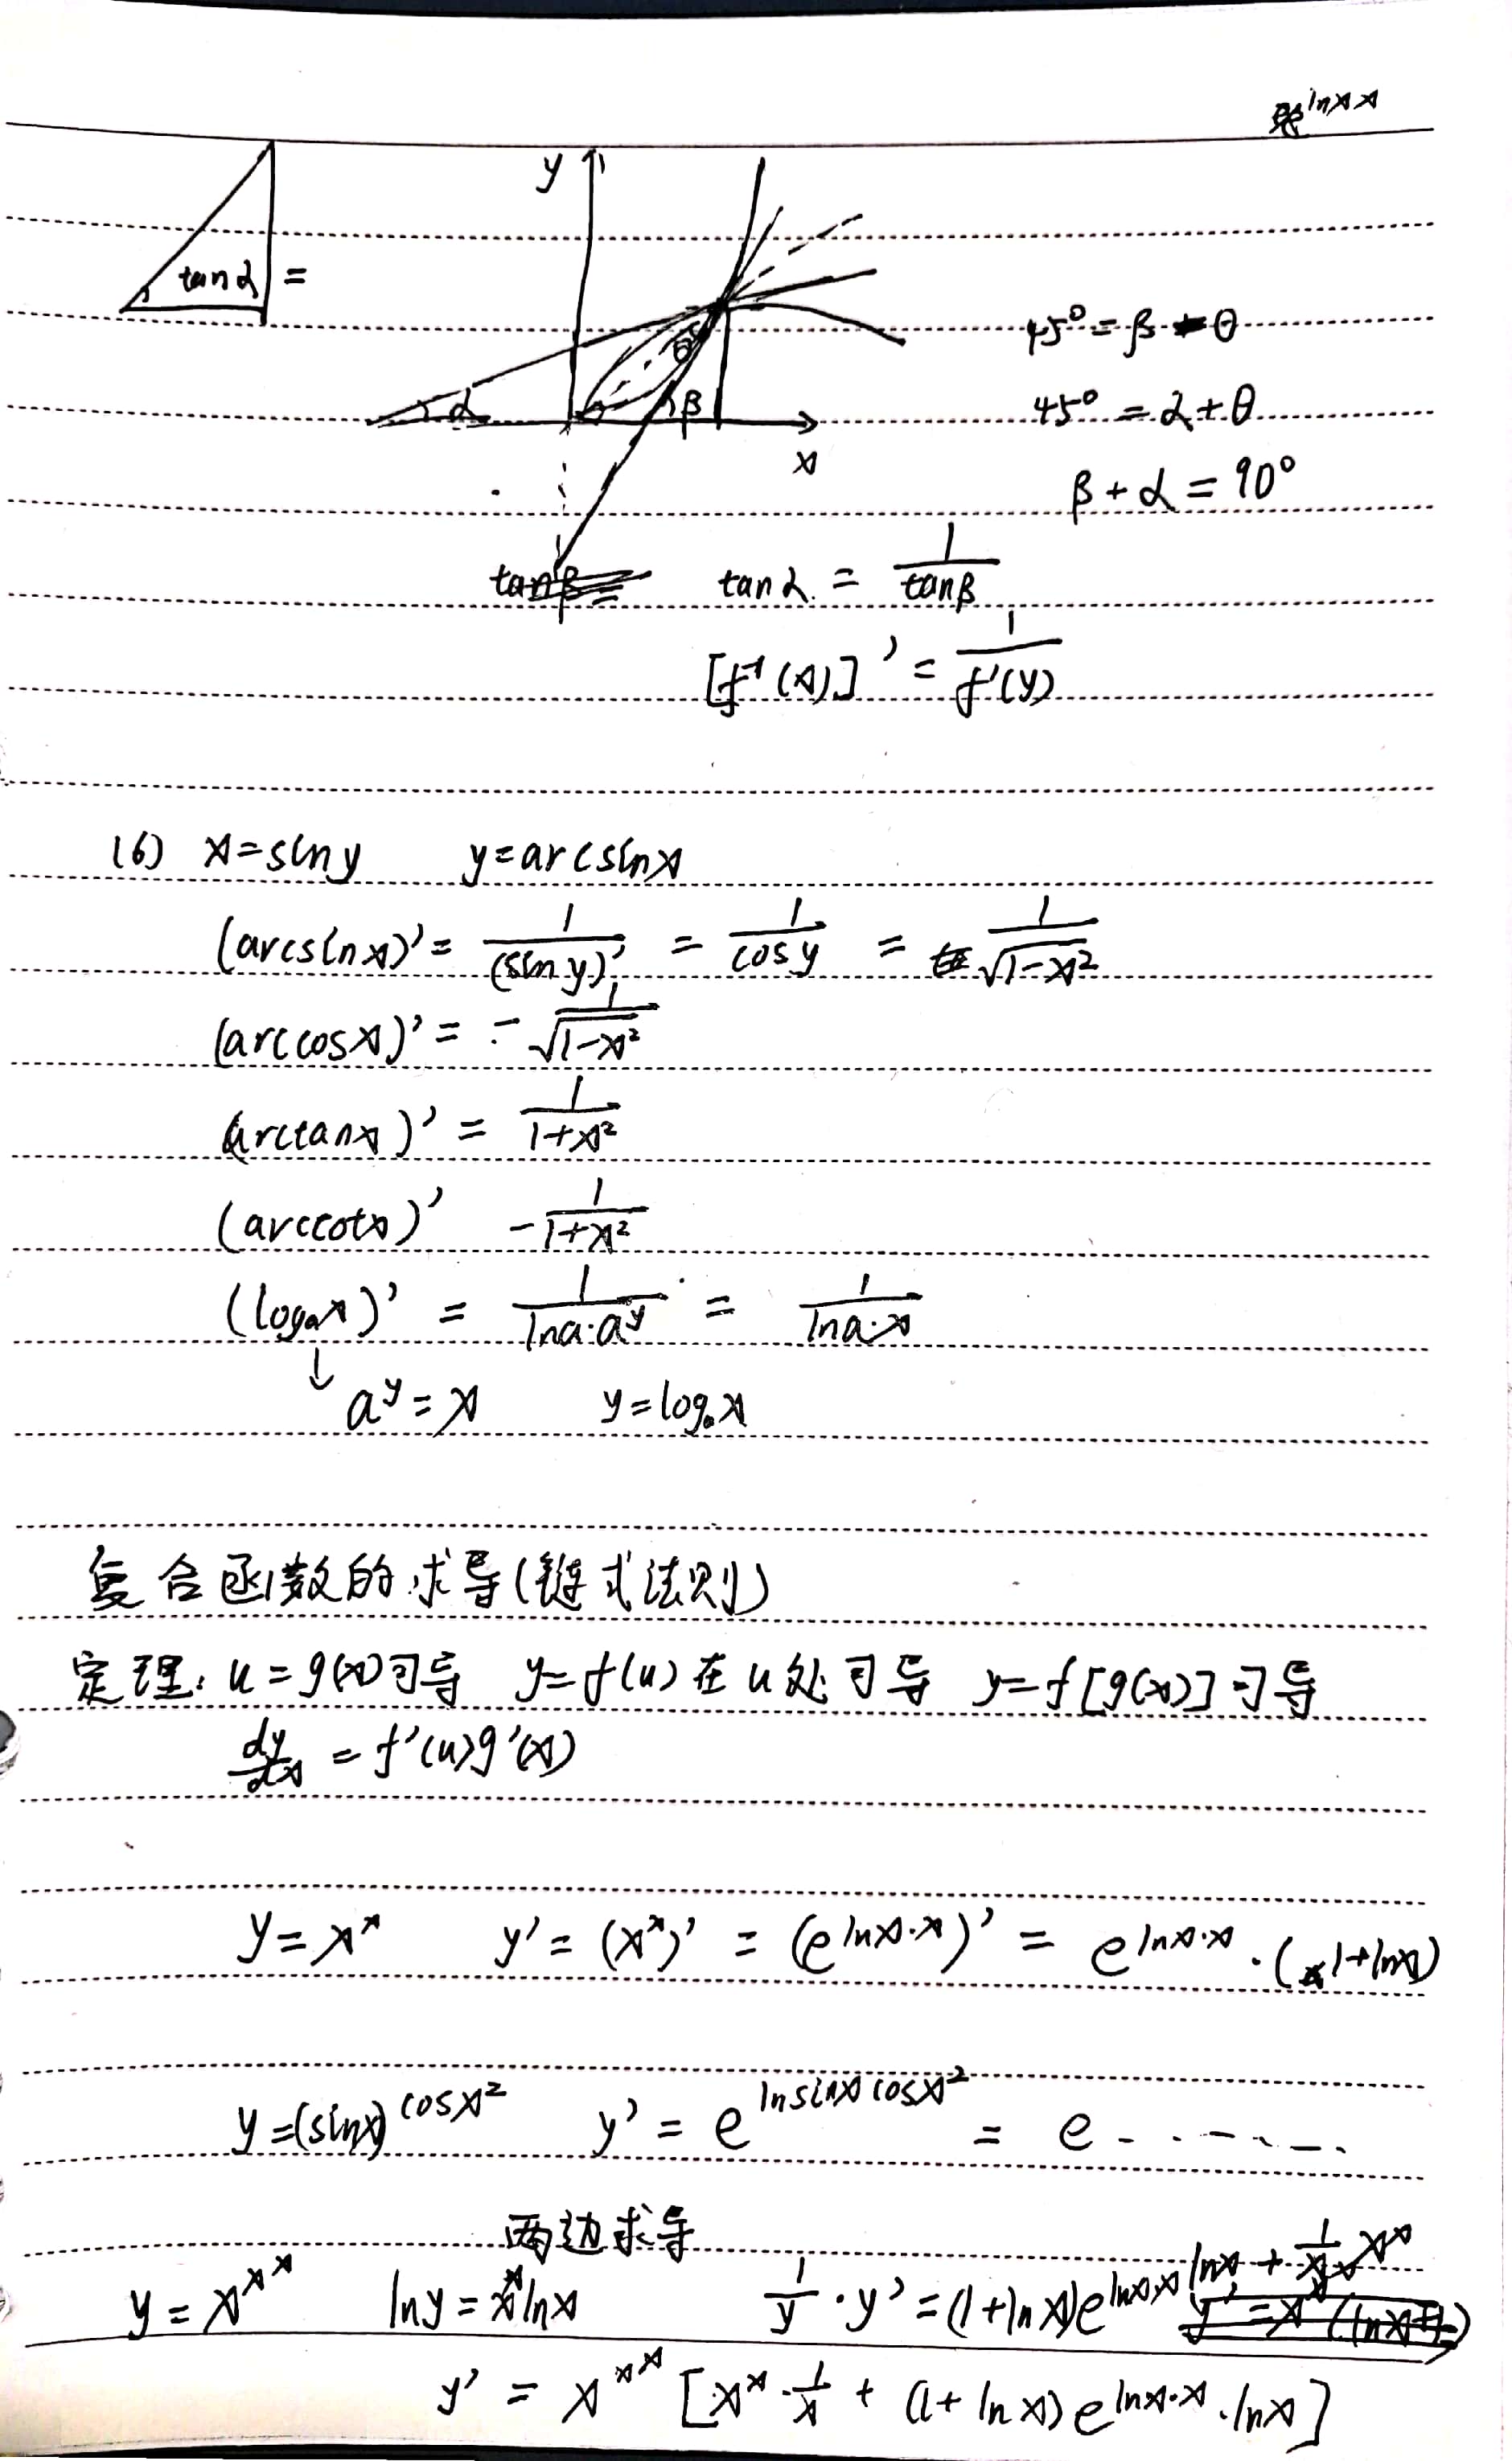 e^{lnx x}
y
tanα =
θ
α
β
x
45° = β - θ
45° = α + θ
β + α = 90°
tanα = 1/tanβ
[f⁻¹(x)]' = 1/f'(y)
(6) x=siny y=arcsinx
(arcsinx)' = 1/(siny)' = 1/cosy = 1/√(1-x²)
(arccosx)' = -1/√(1-x²)
(arctanx)' = 1/(1+x²)
(arccotx)' -1/(1+x²)
(logₐx)' = 1/(lna·a^y) = 1/(lna·x)
↓ a^y = x y = logₐx
复合函数的求导(链式法则)
定理: u=g(x)可导 y=f(u)在u处可导 y=f[g(x)]可导
dy/dx = f'(u)g'(x)
y=x^x y'=(x^x)' = (e^{lnx·x})' = e^{lnx·x}·(1+lnx)
y=(sinx)^{cosx²} y' = e^{lnsinx cosx²} = e-------
两边求导
y=x^{x^x} lny=x^x lnx 1/y·y'=(1+lnx)e^{lnx·x} lnx + 1/x·x^x
y' = x^{x^x}[x^x·1/x + (1+lnx)e^{lnx·x}·lnx]